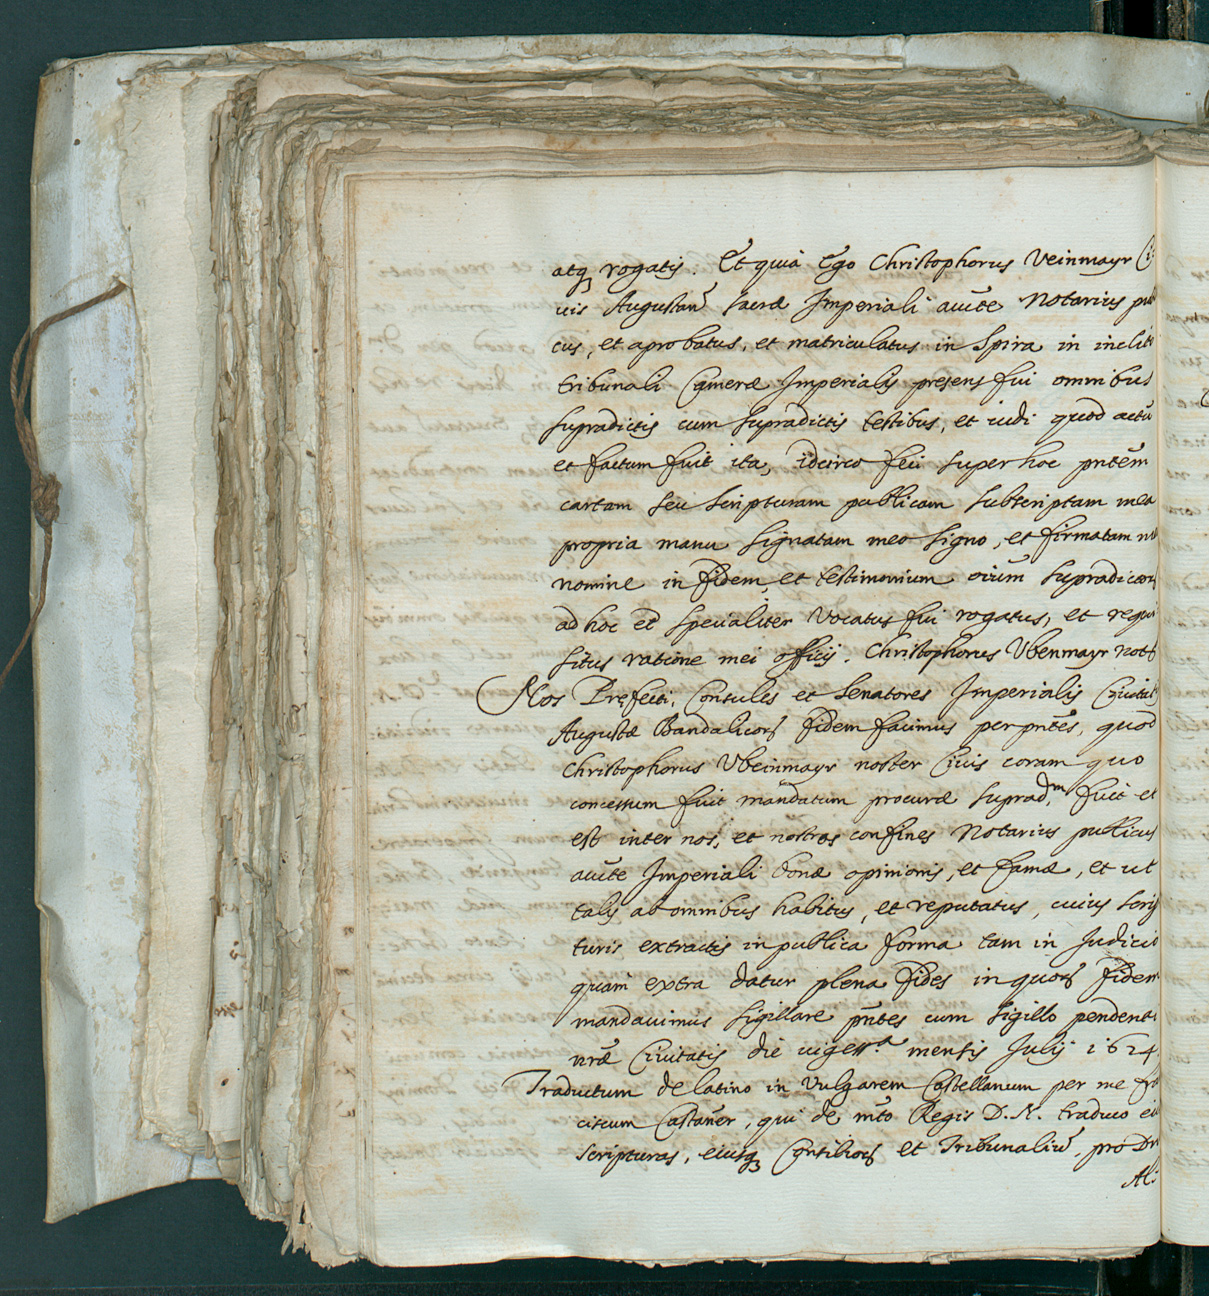 atq3 rogatis. Et quia Ego Christophorus Veinmayr Ci
uis Augustan̄ sacræ Imperiali auct̄e Notarius pub
cus, et aprobatus, et matriculatus in Spira in inclit
tribunali Cameræ Imperialis presens fui omnibus
supradictis cum supradictis testibus, et uidi quod actū
et factum fuit ita, idcirco feci super hoc pntēm
cartam seu scripturam publicam subscriptam mea
propria manu signatam meo signo, et firmatam m
nomine in fidem, et testimonium oiūm supradictor
ad hoc et specialiter vocatus fui rogatus, et requi
situs ratione mei officij. Christophorus Vbenmayr Not
Nos Pręfecti, Consules et Senatores Imperialis Ciuitat
Augustæ Bandalicor fidem facimus per pntēs, quod
Christophorus Vbeinmayr noster Ciuis coram quo
concessum fuit mandatum procuræ suprad.m fuit et
est inter nos, et nostros confines Notarius publicus
auct̄e Imperiali bonæ opinionis, et famæ, et ut
talis ab omnibus habitus, et reputatus, cuius scrip
turis extractis in publica forma tam in Judicio
quam extra datur plena fides in quor fidem
mandauimus sigillare pñtes cum sigillo pendenti
nræ Ciuitatis die uigess.a mensis Julij 1624
Traductum de latino in Vulgarem Castellanum per me fr
ciscum Castañer, qui de mto Regis D. N. traduco ei
scripturas, eiusq3 Consilior et Tribunaliū, pro Dr
Al: